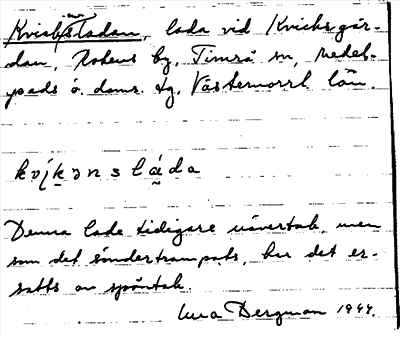 Kvickens ladan, lada vid Kvicksgår-
dan, Rotens by, Timrå sn, Medel-
pads ö. doms. tg, Västernorrl. län.
kvikənsláda
Denna lade tidigare nävertak, men
som det söndertrampats, har det er-
satts av spåntak.
Bergman 1944.